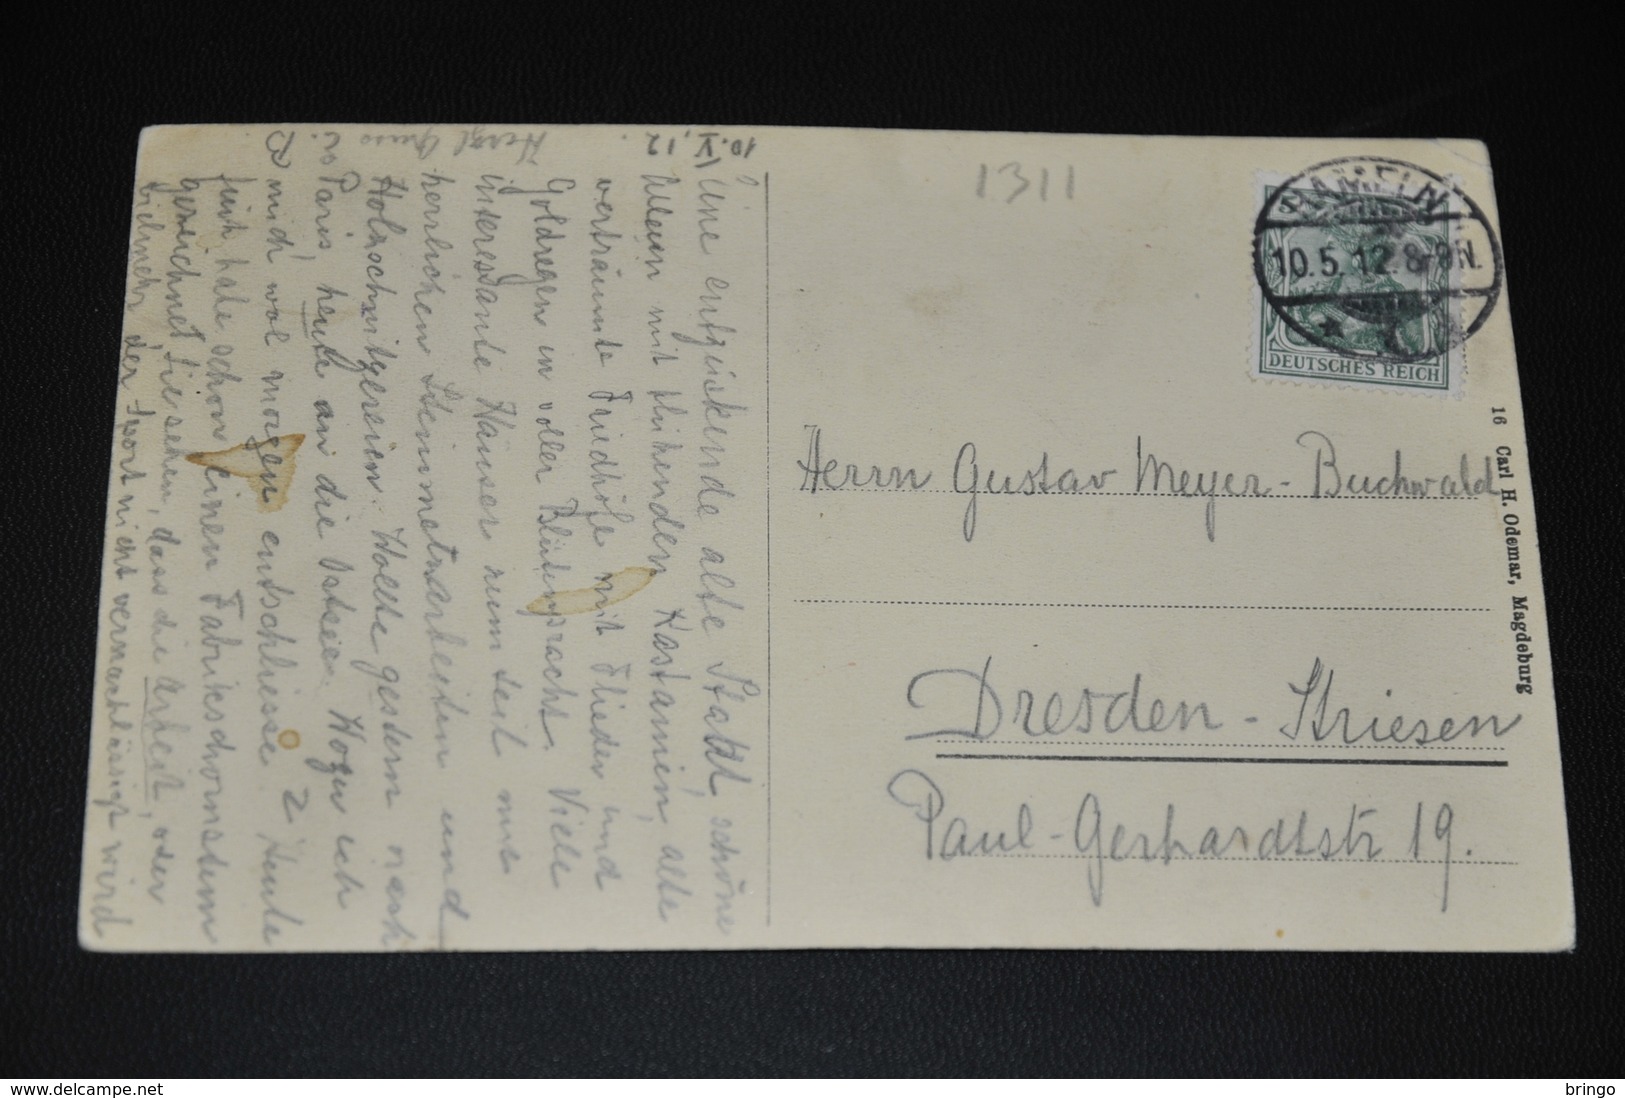 10.V.12.
Eine entzückende alte Stadt, schöne
Alleen mit blühenden Kastanien, alte
verträumte Friedhöfe mit Flieder und
Goldregen in voller Blütenpracht. Viele
interessante Häuser zum teil mit
herrlichen Steinmetzarbeiten und
Holzschnitzereien. Wollte gestern nach
Paris, heute an die Ostsee. Wozu ich
mich wol morgen entschliesse? Heute
früh habe schon einen Fabrikschornstein
gezeichnet, Sie sehen, dass die Arbeit, oder
vielmehr der Sport nicht vernachlässigt wird
Herzl. Gruss
1311
HAMELN
10.5.12.8-9N.
DEUTSCHES REICH
Herrn Gustav Meyer-Buchwald
Dresden-Striesen
Paul-Gerhardtstr 19.
16 Carl H. Odemar, Magdeburg
http://www.delcampe.net
bringo